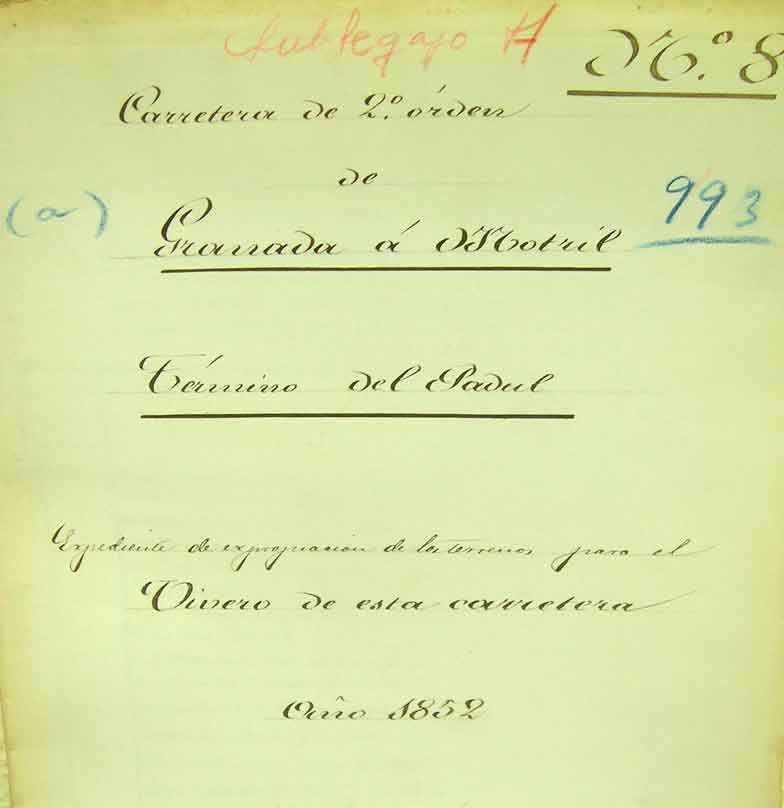 Sublegajo H
N.º 8
Carretera de 2.º órden
de
(a)
993
Granada á Motril
Término del Padul
Expediente de expropiacion de los terrenos para el
Vivero de esta carretera
Año 1852